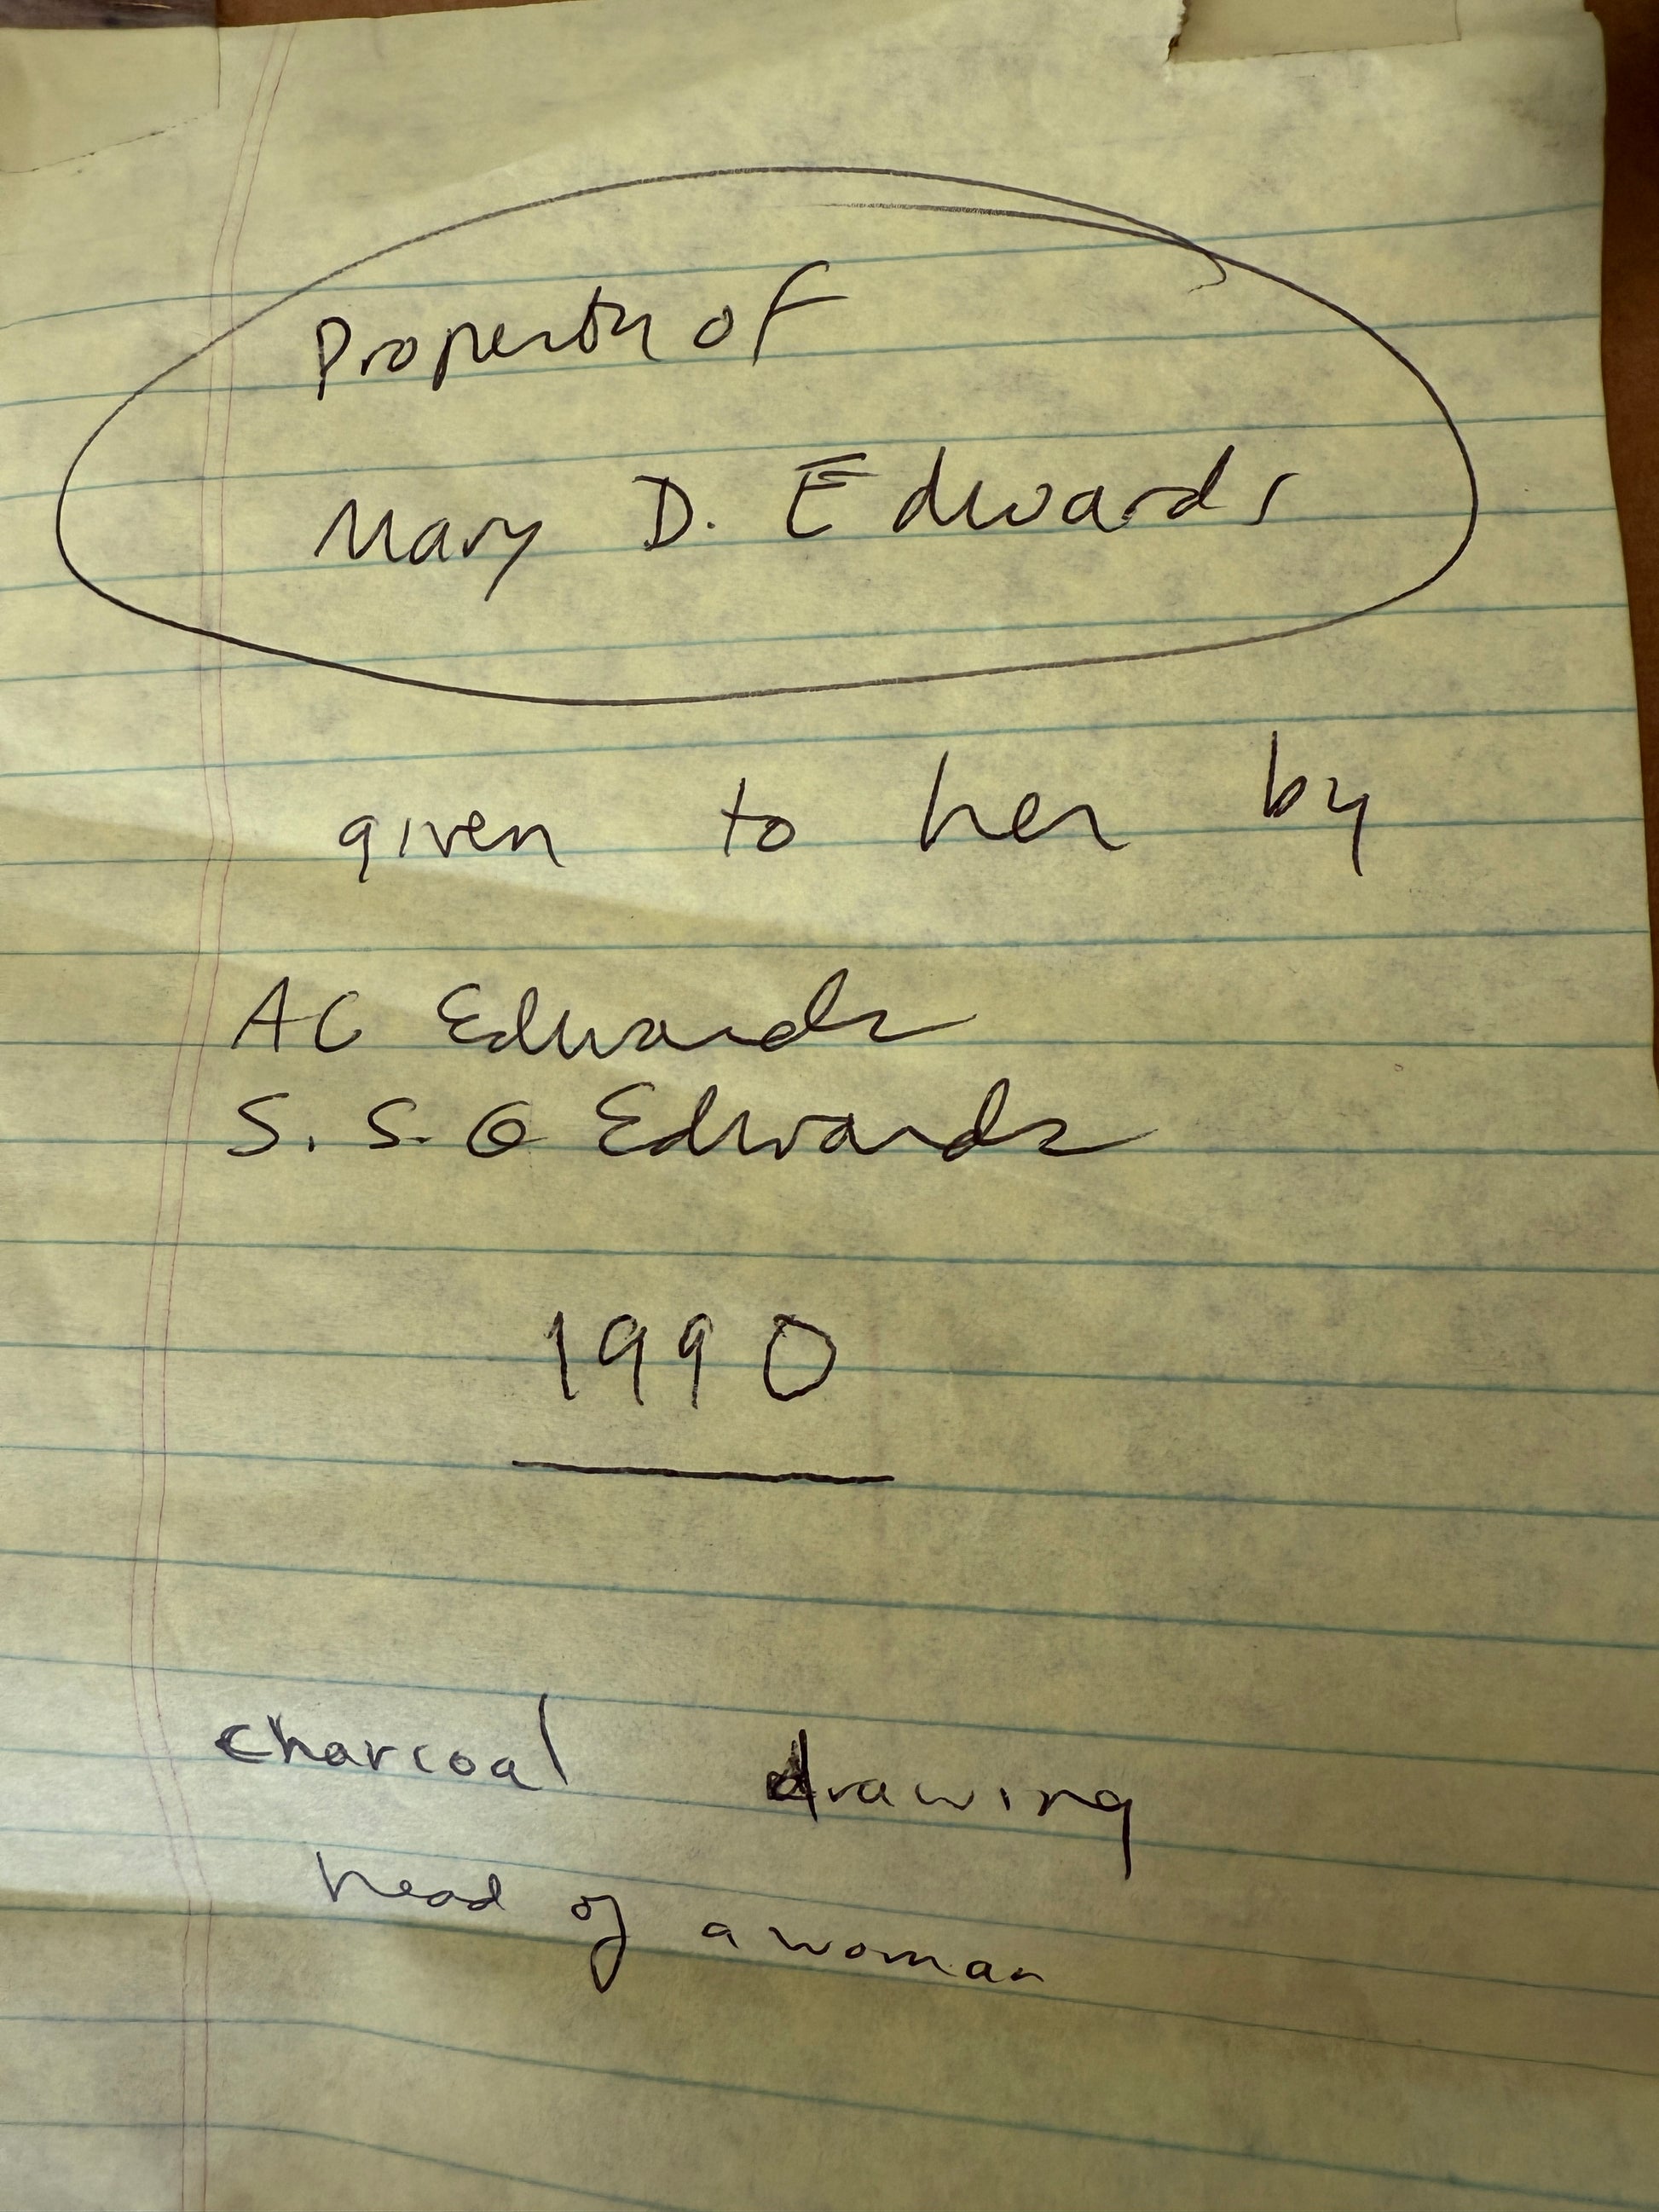 Property of
Mary D. Edwards
given to her by
AC Edwards
S. S. G Edwards
1990
charcoal drawing
head of a woman